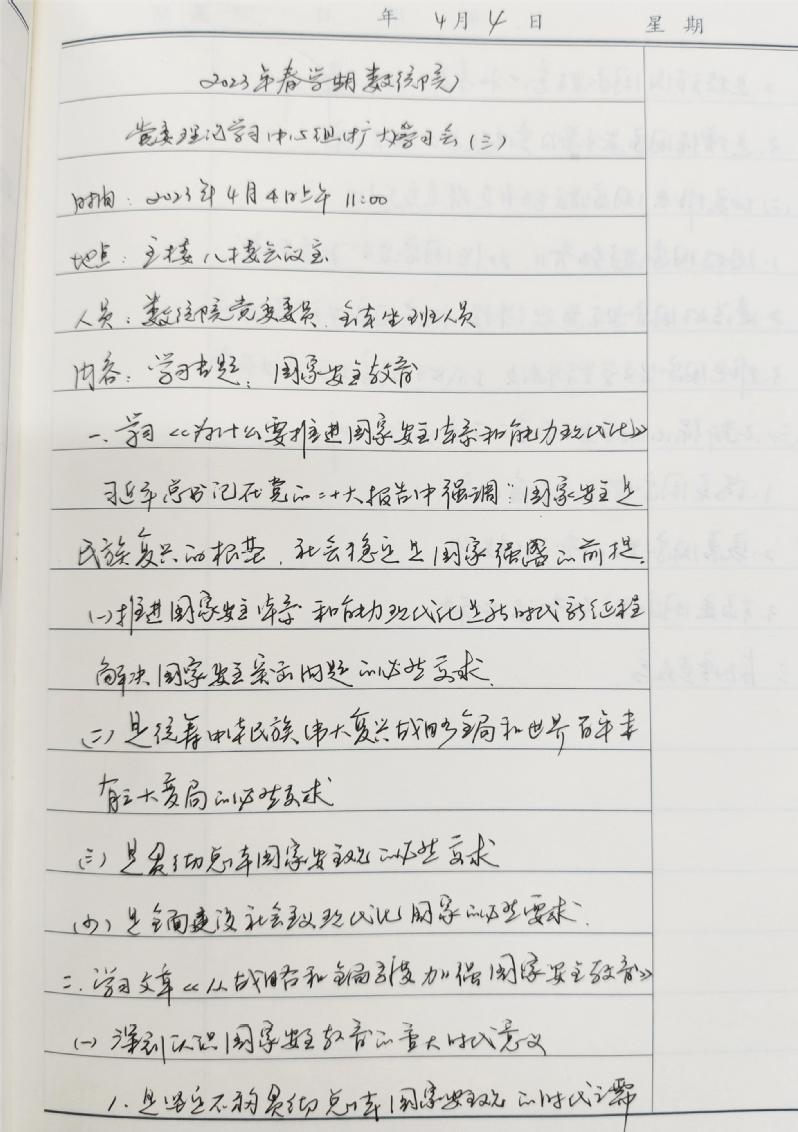 年 4月 4 日 星期
2023年春学期数统院
党委理论学习中心组(扩大)学习会(三)
时间：2023年4月4日上午 11:00
地点：主楼八楼会议室
人员：数统院党委委员、全体坐班人员
内容：学习专题：国家安全教育
一、学习《为什么要推进国家安全体系和能力现代化》
习近平总书记在党的二十大报告中强调："国家安全是
民族复兴的根基，社会稳定是国家强盛的前提。
(一)推进国家安全体系和能力现代化是新时代新征程
解决国家安全突出问题的必然要求
(二)是统筹中华民族伟大复兴战略全局和世界百年未
有之大变局的必然要求
(三)是贯彻总体国家安全观的必然要求
(四)是全面建设社会主义现代化国家的必然要求.
二、学习文章《从战略和全局高度加强国家安全教育》
(一)深刻认识国家安全教育的重大时代意义
1.是坚定不移贯彻总体国家安全观的时代之需